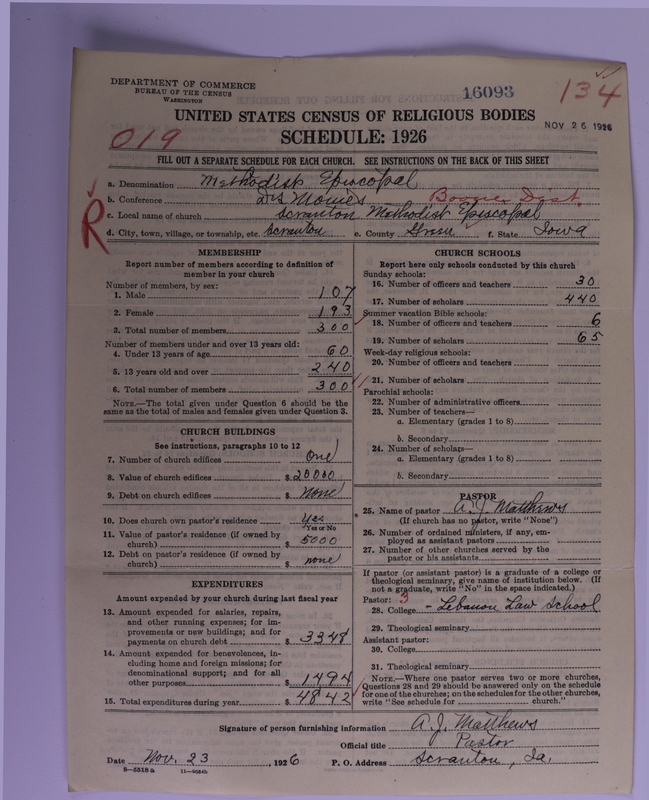 DEPARTMENT OF COMMERCE
BUREAU OF THE CENSUS
WASHINGTON
16093
134
UNITED STATES CENSUS OF RELIGIOUS BODIES
NOV 26 1926
019
SCHEDULE: 1926
FILL OUT A SEPARATE SCHEDULE FOR EACH CHURCH. SEE INSTRUCTIONS ON THE BACK OF THIS SHEET
a. Denomination Methodist Episcopal
b. Conference Des Moines Boone Dist.
c. Local name of church Scranton Methodist Episcopal
R
d. City, town, village, or township, etc. Scranton e. County Green f. State Iowa
MEMBERSHIP
Report number of members according to definition of
member in your church
Number of members, by sex:
1. Male 107
2. Female 193
3. Total number of members 300
Number of members under and over 13 years old:
4. Under 13 years of age 60
5. 13 years old and over 240
6. Total number of members 300
NOTE.—The total given under Question 6 should be the
same as the total of males and females given under Question 3.
CHURCH BUILDINGS
See instructions, paragraphs 10 to 12
7. Number of church edifices One
8. Value of church edifices $ 20000
9. Debt on church edifices $ None
10. Does church own pastor's residence Yes
Yes or No
11. Value of pastor's residence (if owned by
church) $ 5000
12. Debt on pastor's residence (if owned by
church) $ none
EXPENDITURES
Amount expended by your church during last fiscal year
13. Amount expended for salaries, repairs,
and other running expenses; for im-
provements or new buildings; and for
payments on church debt $ 3348
14. Amount expended for benevolences, in-
cluding home and foreign missions; for
denominational support; and for all
other purposes $ 1494
15. Total expenditures during year $ 4842
CHURCH SCHOOLS
Report here only schools conducted by this church
Sunday schools:
16. Number of officers and teachers 30
17. Number of scholars 440
Summer vacation Bible schools:
18. Number of officers and teachers 6
19. Number of scholars 65
Week-day religious schools:
20. Number of officers and teachers
21. Number of scholars
Parochial schools:
22. Number of administrative officers
23. Number of teachers—
a. Elementary (grades 1 to 8)
b. Secondary
24. Number of scholars—
a. Elementary (grades 1 to 8)
b. Secondary
PASTOR
25. Name of pastor A. J. Matthews
(If church has no pastor, write "None")
26. Number of ordained ministers, if any, em-
ployed as assistant pastors
27. Number of other churches served by the
pastor or his assistants
If pastor (or assistant pastor) is a graduate of a college or
theological seminary, give name of institution below. (If
not a graduate, write "No" in the space indicated.)
Pastor: 3
28. College - Lebanon Law School
29. Theological seminary
Assistant pastor:
30. College
31. Theological seminary
NOTE.—Where one pastor serves two or more churches,
Questions 28 and 29 should be answered only on the schedule
for one of the churches; on the schedules for the other churches,
write "See schedule for church."
Signature of person furnishing information A. J. Matthews
Official title Pastor
Date Nov. 23, 1926 P. O. Address Scranton, Ia.
8—5518a 11—9284b